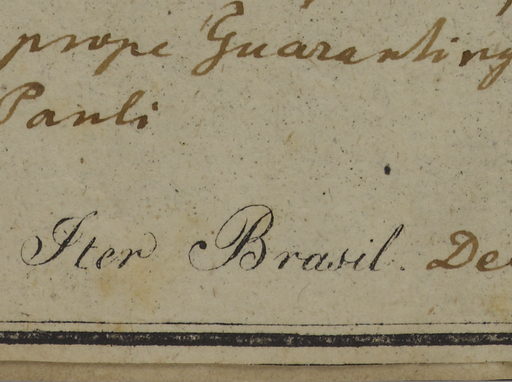 prope Guaranting
Pauli
Iter Brasil. Dec